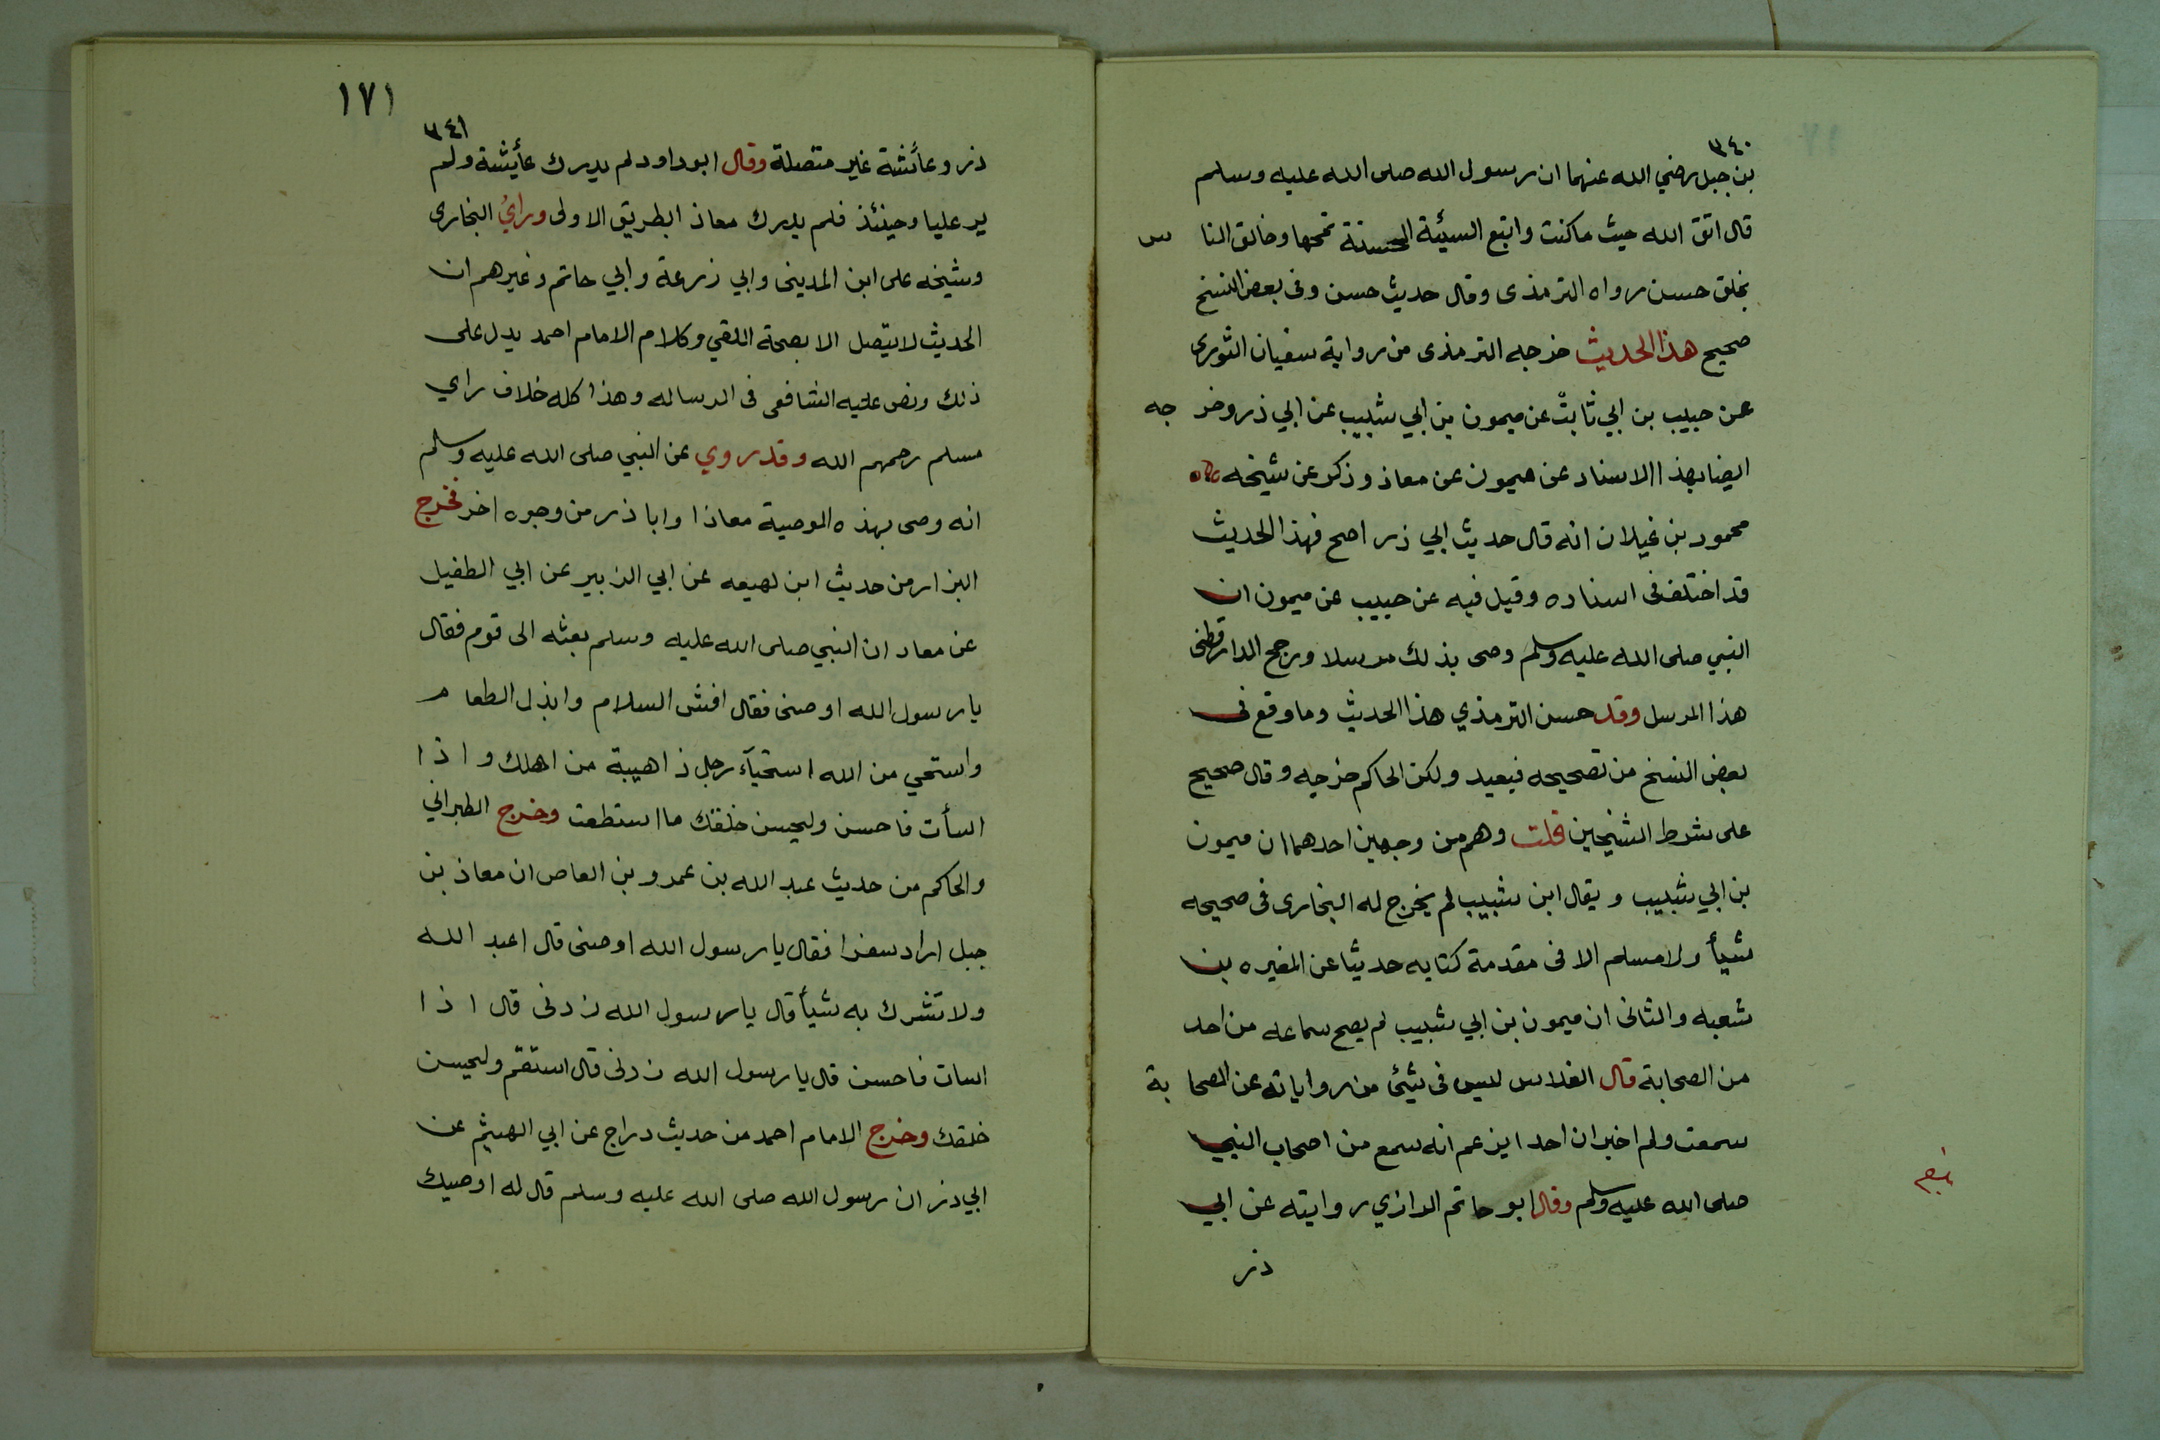 ٣٤٠
بن جبل رضي الله عنهما ان رسول الله صلى الله عليه وسلم
قال اتق الله حيث ما كنت واتبع السيئة الحسنة تمحها وخالق الناس
بخلق حسن رواه الترمذى وقال حديث حسن وفى بعض النسخ
صحيح هذا الحديث خرجه الترمذى من رواية سفيان الثورى
عن حبيب بن ابي ثابت عن ميمون بن ابي شبيب عن ابي ذر وخرجه
ايضا بهذا الاسناد عن ميمون عن معاذ وذكر عن شيخه
محمود بن غيلان انه قال حديث ابي ذر اصح فهذا الحديث
قد اختلف فى اسناده وقيل فيه عن حبيب عن ميمون ان
النبي صلى الله عليه وسلم وصى بذلك مرسلا ورجح الدارقطنى
هذا المرسل وقد حسن الترمذي هذا الحديث وما وقع فى
بعض النسخ من تصحيحه فبعيد ولكن الحاكم خرجه وقال صحيح
على شرط الشيخين قلت وهم من وجهين احدهما ان ميمون
بن ابي شبيب ويقال ابن شبيب لم يخرج له البخارى فى صحيحه
شيأ ولا مسلم الا فى مقدمة كتابه حديثا عن المغيره بن
شعبه والثانى ان ميمون بن ابي شبيب لم يصح سماعه من احد
من الصحابة قال الفلاس ليس فى شئ من رواياته عن الصحابة
سمعت ولم اخبر ان احدا يزعم انه سمع من اصحاب النبي
صلى الله عليه وسلم وقال ابو حاتم الرازي روايته عن ابي
ذر
١٧١
٣٤١
ذر وعائشة غير متصلة وقال ابو داود لم يدرك عأيشة ولم
ير عليا وحينئذ فلم يدرك معاذ ابطريق الاولى وراي البخارى
وشيخه على ابن المدينى وابي زرعة وابي حاتم وغيرهم ان
الحديث لا يتصل الا بصحة اللقي وكلام الامام احمد يدل على
ذلك ونص عليه الشافعى فى الرساله وهذا كله خلاف راي
مسلم رحمهم الله وقد روي عن النبي صلى الله عليه وسلم
انه وصى بهذه الوصية معاذا وابا ذر من وجوه اخر فخرج
البزار من حديث ابن لهيعه عن ابي الزبير عن ابي الطفيل
عن معاد ان النبي صلى الله عليه وسلم بعثه الى قوم فقال
يا رسول الله اوصنى فقال افش السلام وابذل الطعام
واستحي من الله استحيآء رجل ذا هيبة من اهلك واذا
اسأت فاحسن وليحسن خلقك ما استطعت وخرج الطبراني
والحاكم من حديث عبد الله بن عمرو بن العاص ان معاذ بن
جبل اراد سفرا فقال يا رسول الله اوصنى قال اعبد الله
ولا تشرك به شيأ قال يا رسول الله زدنى قال اذا
اسات فاحسن قال يا رسول الله زدنى قال استقم وليحسن
خلقك وخرج الامام احمد من حديث دراج عن ابي الهيثم عن
ابي ذر ان رسول الله صلى الله عليه وسلم قال له اوصيك